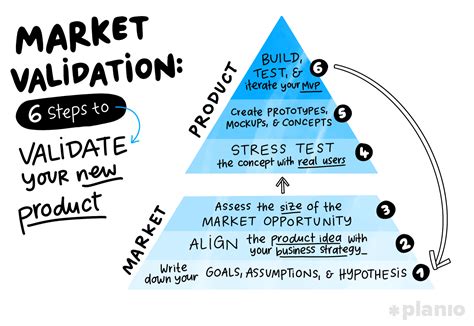 MARKET
VALIDATION:
6 Steps to
VALIDATE
your new
product
PRODUCT
BUILD,
TEST, &
iterate your MVP
6
Create PROTOTYPES,
MOCKUPS, & CONCEPTS
5
STRESS TEST
the concept with real users
4
MARKET
Assess the size of the
MARKET OPPORTUNITY
3
ALIGN the product idea with
your business strategy
2
Write
down your GOALS, ASSUMPTIONS, & HYPOTHESIS
1
*planio